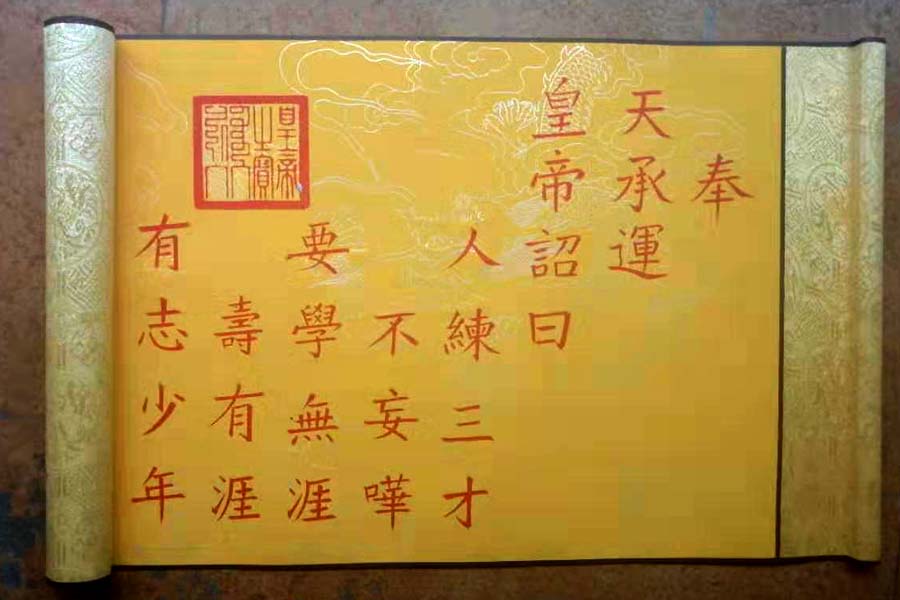 奉
天承運
皇帝詔曰
人練三才
不妄嘩
要學無涯
壽有涯
有志少年
皇帝之寶